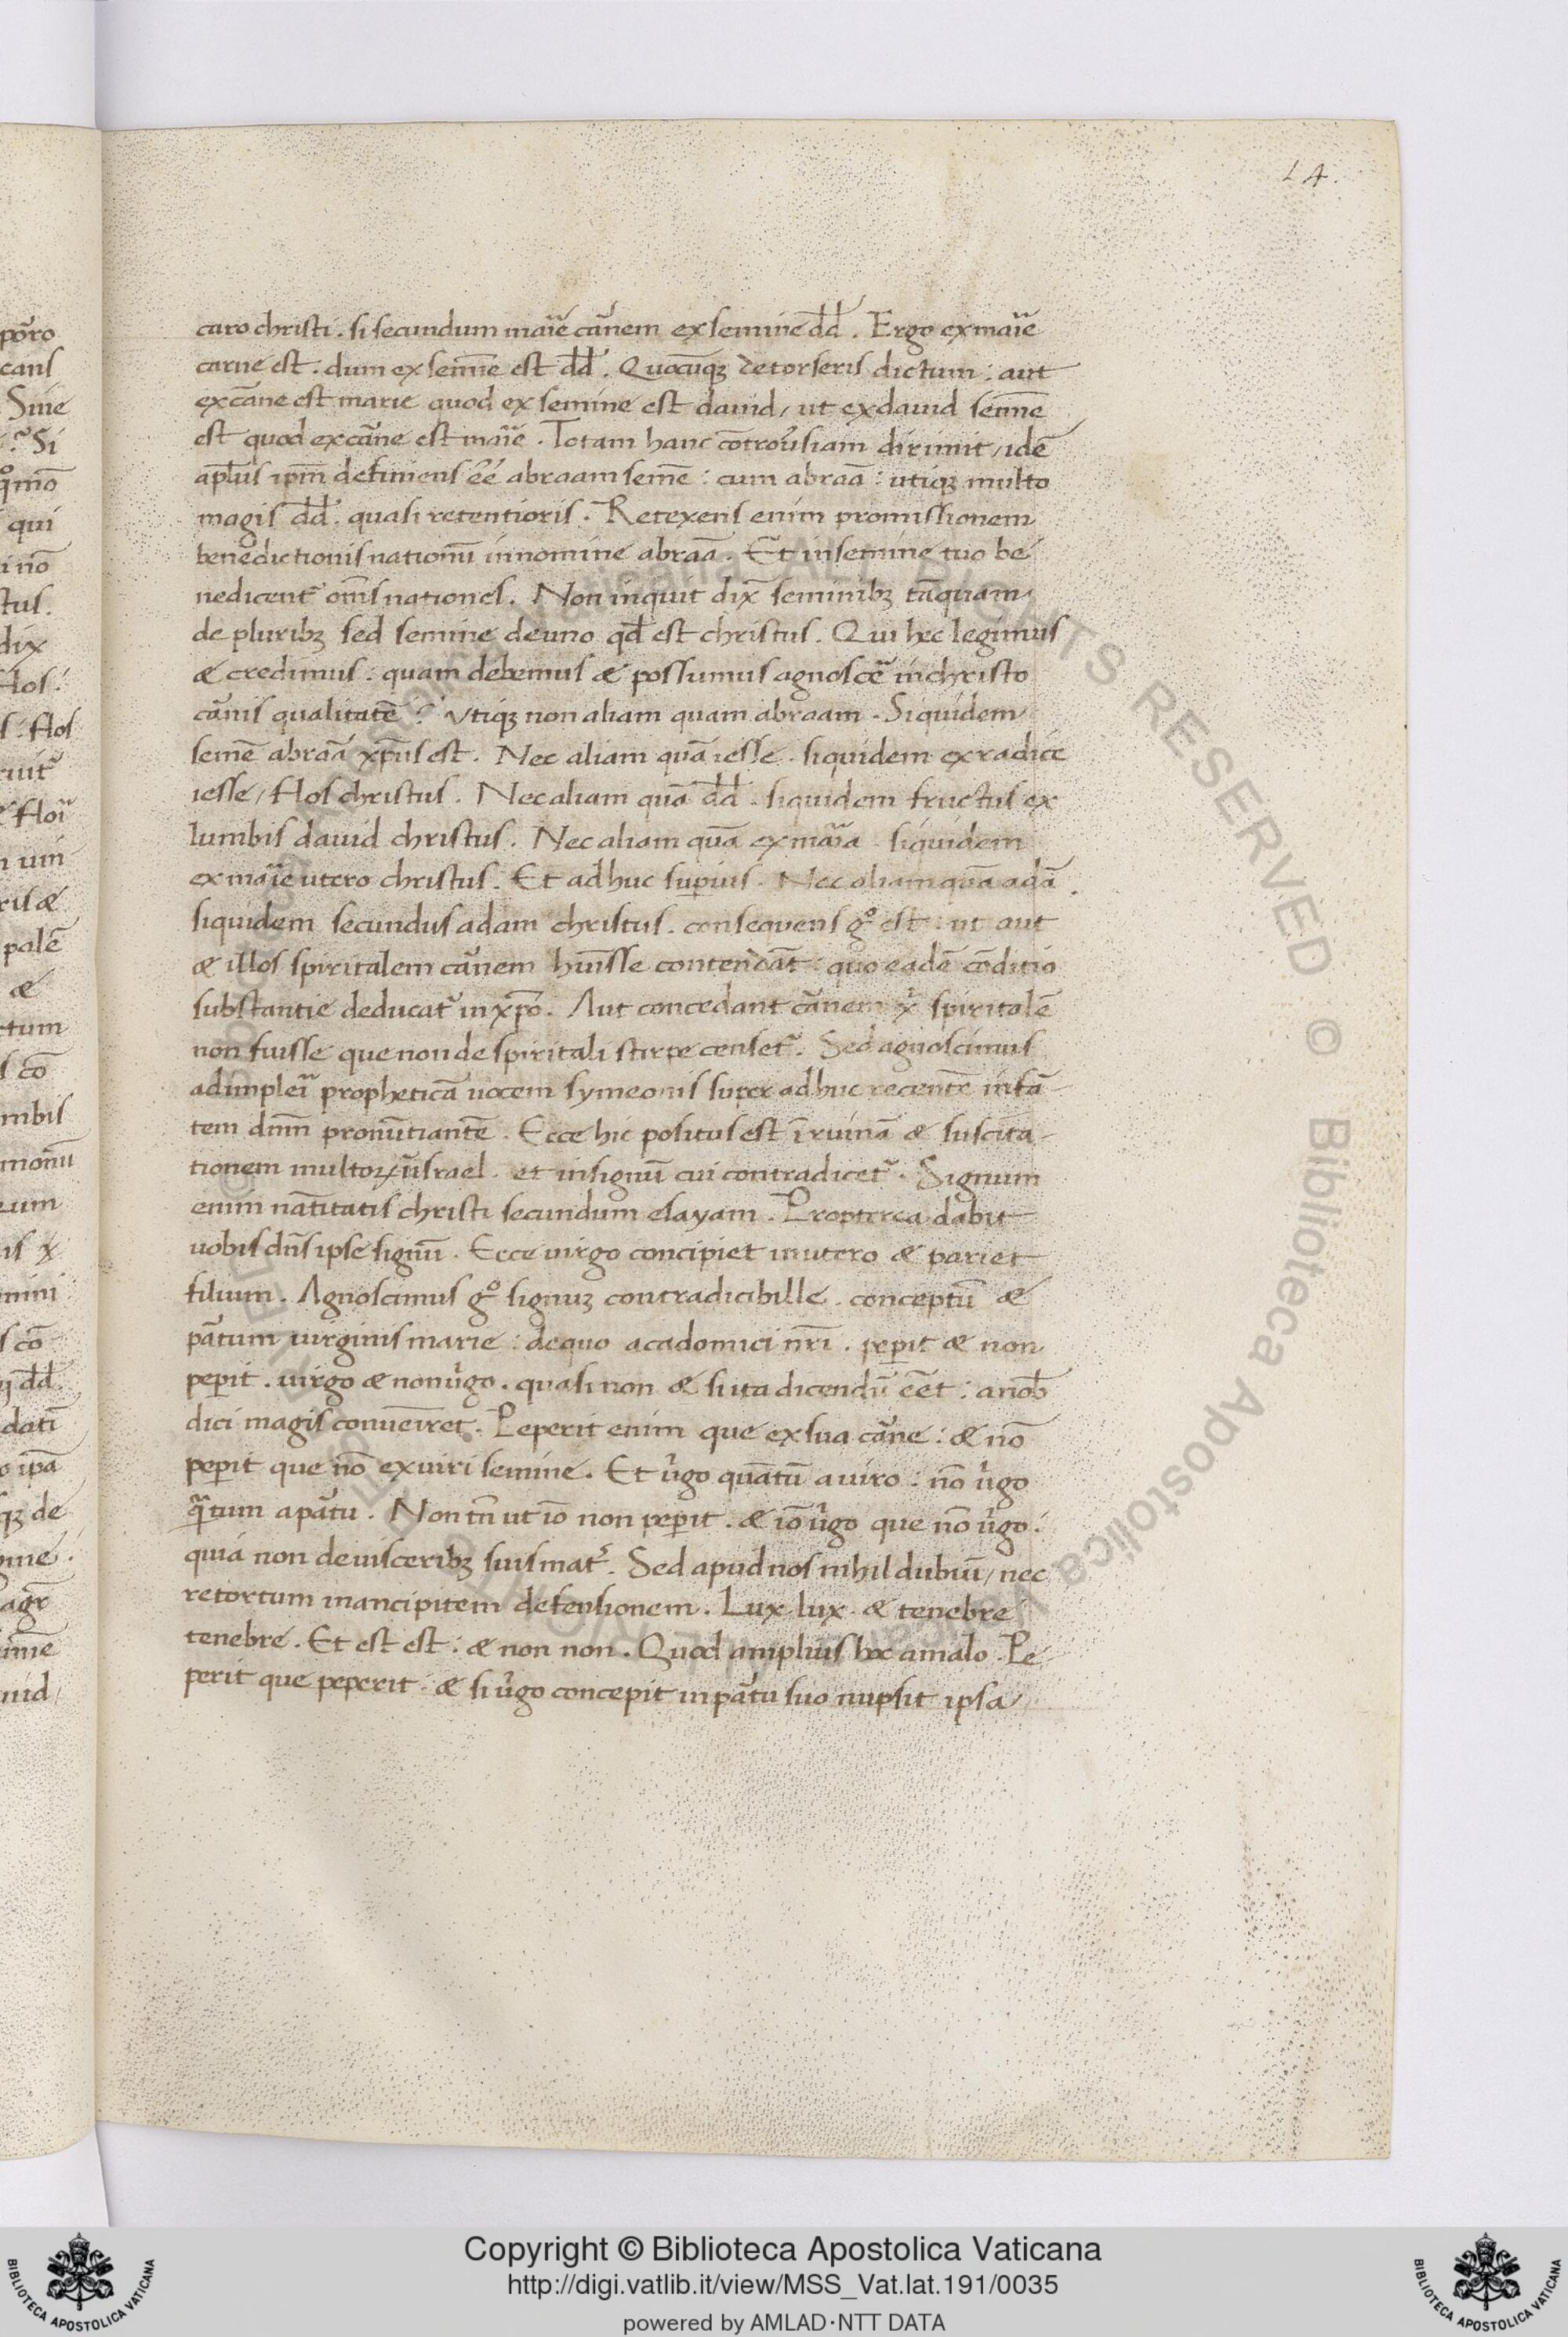 14.
caro christi . si secundum maı̃e cãnem ex semine dd̄ . Ergo ex maı̃e
carne est . dum ex semı̄e est dd̄ . Quocūqꝫ detorseris dictum : aut
ex cãne est marie quod ex semine est david / ut ex david semı̄e
est quod ex cãne est maı̃e . Totam hanc cōtrov̓siam dirimit / idē
apl̄us ip̄m definiens eē abraam semē : cum abraā : utiqꝫ multo
magis dd̄ . quasi retentioris . Retexens enim promissionem
benedictionis nationū in nomine abraā . Et in semine tuo be
nedicent᷑ om̄s nationes . Non inquit dix̄ seminibꝫ tāquam
de pluribꝫ sed semine de uno qd̄ est christus . Qui hec legimus
& credimus : quam debemus & possumus agnoscẽ in christo
cãnis qualitatē ? Utiqꝫ non aliam quam abraam . Siquidem
semē abraā xp̄us est . Nec aliam quā iesse . siquidem ex radice
iesse / flos christus . Nec aliam quā dd̄ . siquidem fructus ex
lumbis david christus . Nec aliam quā ex maı̃a . siquidem
ex maı̃e utero christus . Et adhuc superius . Nec aliam quā adā .
siquidem secundus adam christus . consequens gͦ est : ut aut
& illos spiritalem cãnem hūisse contendāt : quo eadē cōditio
substantie deducat᷑ in xp̄o . Aut concedant cãnem xͥ spiritalē
non fuisse que non de spiritali stirpe censet᷑ . Sed agnoscimus
adimpleı̃ propheticā vocem symeonis super adhuc recentē infā-
tem dn̄m pronūtiantē . Ecce hic positus est ī ruinā & suscita-
tionem multoꝝ ūisrael . et in signū cui contradicet᷑ . Signum
enim natı̄tatis christi secundum esayam . Propterea dabit
vobis dn̄s ipse signū . Ecce virgo concipiet in utero & pariet
filium . Agnoscimus gͦ signuꝫ contradicibille . conceptū &
pãtum virginis marie : de quo acadomici nr̄i . pep̱it & non
pep̱it . virgo & non v̓go . quasi non & si ita dicendū eēt : a nob̄
dici magis conveı̄ret . Peperit enim que ex sua cãne : & nō
pep̱it que nō ex viri semine . Et v̓go quātū a viro : nō v̓go
qᷓtum a pãtu . Non tn̄ ut iō non pep̱it . & iō v̓go que nō v̓go .
quia non de visceribꝫ suis mat᷑ . Sed apud nos nihil dubiū / nec
retortum in ancipitem defensionem . Lux lux & tenebre
tenebre . Et est est : & non non . Quod amplius hoc a malo . Pe
perit que peperit : & si v̓go concepit in pãtu suo nupsit ipsa /
Copyright © Biblioteca Apostolica Vaticana
http://digi.vatlib.it/view/MSS_Vat.lat.191/0035
powered by AMLAD·NTT DATA